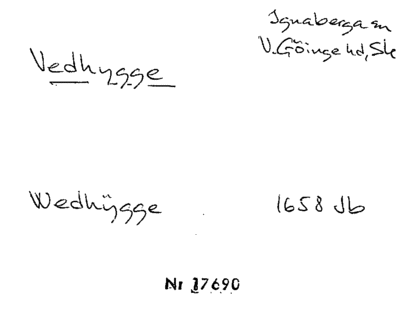 Ignaberga sn
V. Göinge hd, Sk
Vedhygge
Wedhÿgge
1658 Jb
Nr 17690